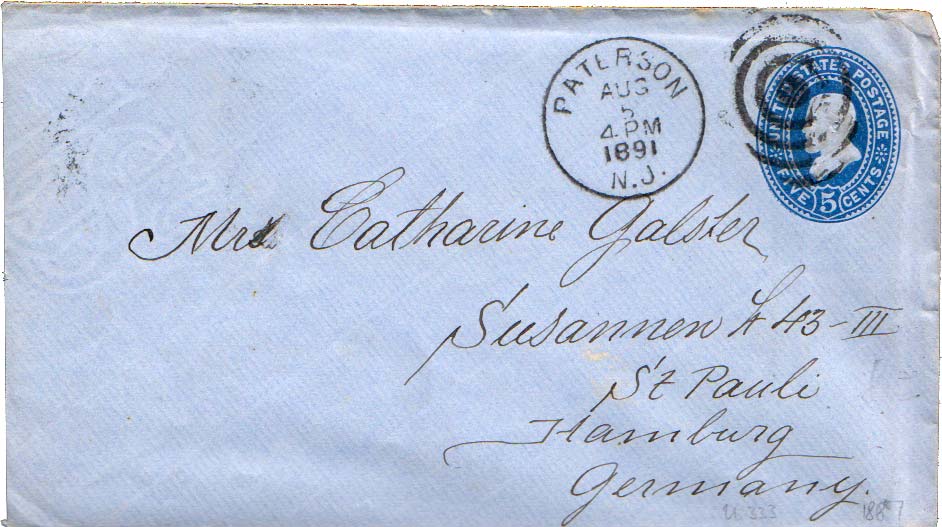 PATERSON
AUG
5
4 PM
1891
N.J.
UNITED STATES POSTAGE
FIVE 5 CENTS
Mrs Catharine Galster
Susannen St 43-III
St Pauli
Hamburg
Germany.
U 333 1887